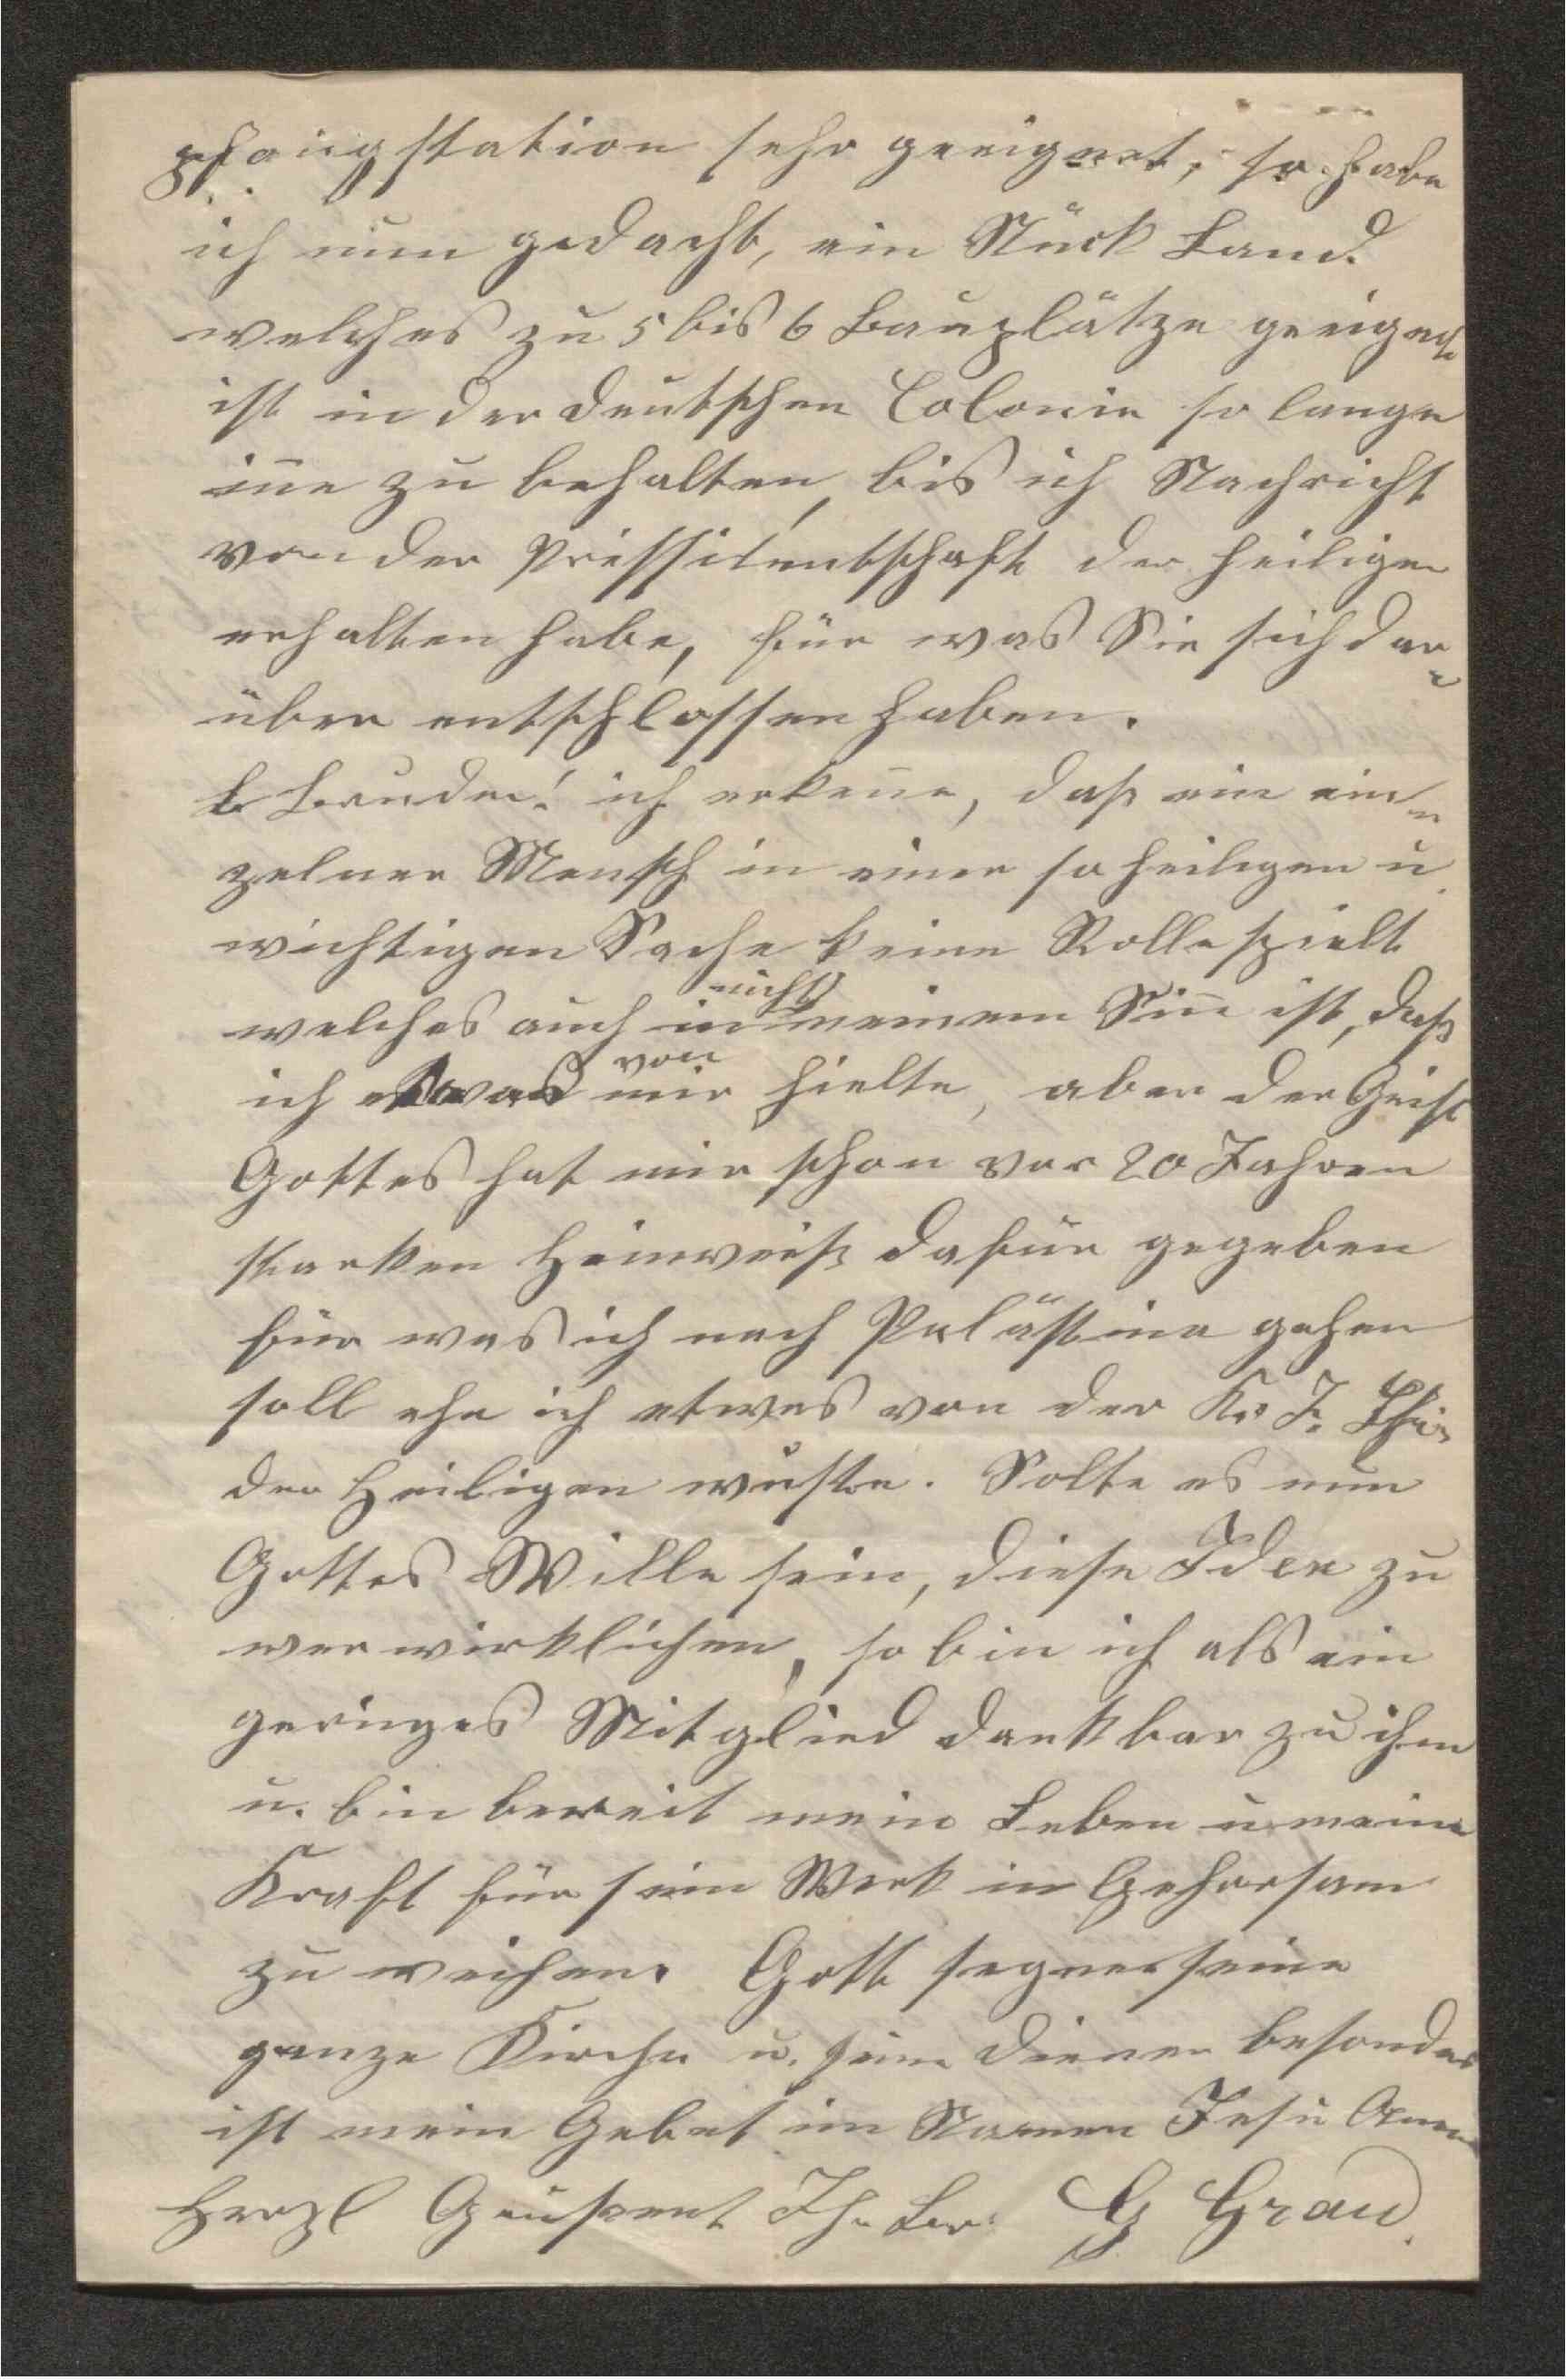 pfangstation sehr geeignet, so habe
ich nun gedacht, ein Stück Land
welches zu 5 bis 6 Bauplätze geeignet
ist in der deutschen Colonie so lange
ine zu behalten, bis ich Nachricht
von der Pressitentschaft der heiligen
erhalten habe, für was Sie sich dar=
über entschlossen haben.
L Bruder! ich erkene, daß ein ein=
zelner Mensch in einer so heiligen u.
wichtigen Sache keine Rolle spielt
welches auch nicht in meinem Sin ist, daß
ich etwas von mir hielte, aber der Geist
Gottes hat mir schon vor 20 Jahren
starken Hinweiß dafür gegeben
für was ich nach Palästina gehen
soll ehe ich etwas von der K. J. Chri.
der Heiligen wußte. Solte es nun
Gottes Wille sein, diese Idee zu
verwirklichen, so bin ich als ein
geringes Mitglied dankbar zu ihm
u. bin bereit mein Leben u meine
Kraft für sein Werk in Gehorsam
zu weihen. Gott segne seine
ganze Kirche u. seine Diener besonders
ist mein Gebet im Namen Jesu Amen
Herzl Grüßent Ihr Br. G Grau.